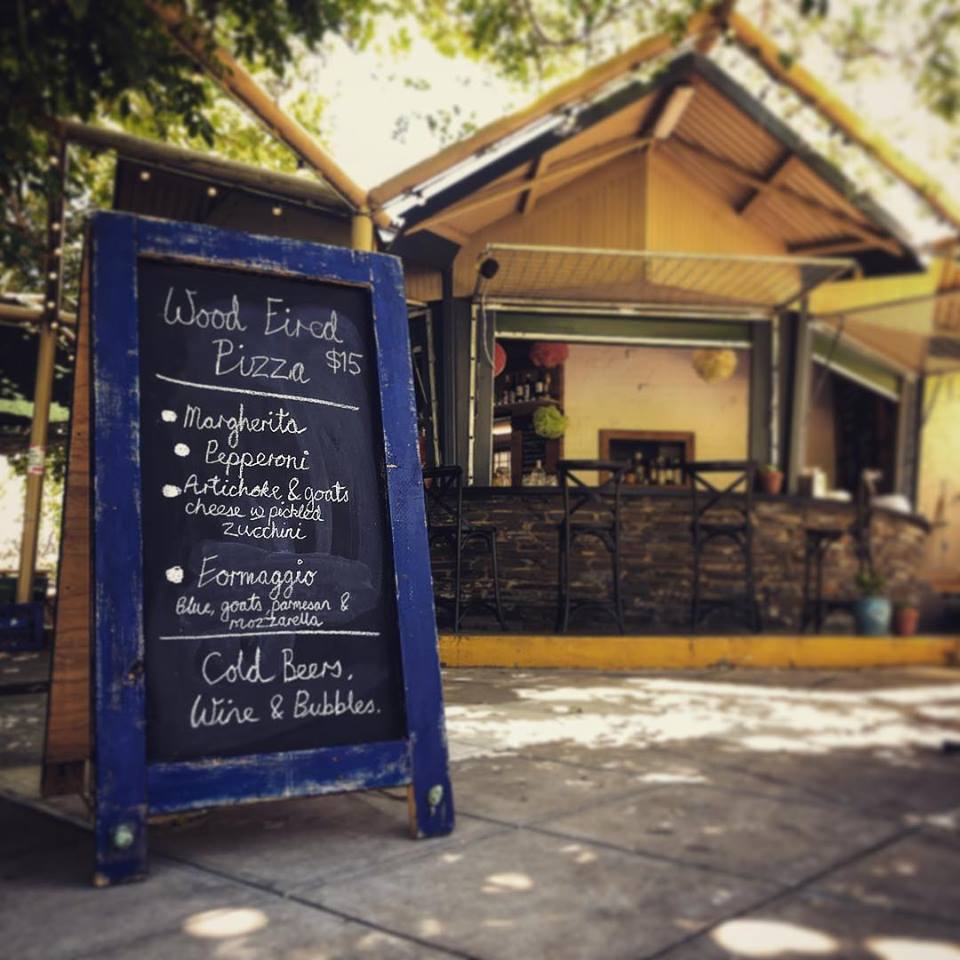 Wood Fired
Pizza $15
Margherita
Pepperoni
Artichoke & goats
cheese w pickled
zucchini
Formaggio
Blue, goats, parmesan &
mozzarella
Cold Beers,
Wine & Bubbles.